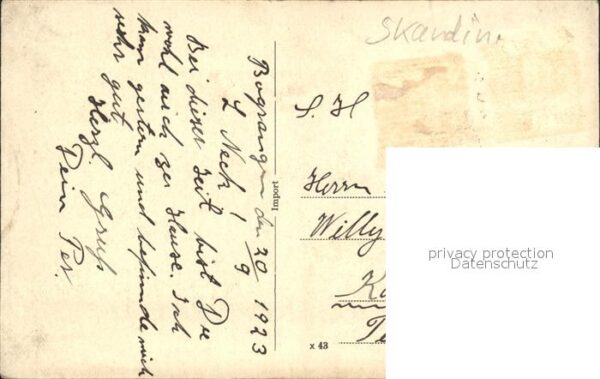 Skandin.
Bograngen den 20/9 1923
L Neck!
Bei dieser Zeit bist Du
wohl auch zu Hause. Ich
kam gestern und befinde mich
sehr gut
Herzl. Gruß
Dein Per.
Import
S. H
Herrn
Willy
x 43
privacy protection
Datenschutz